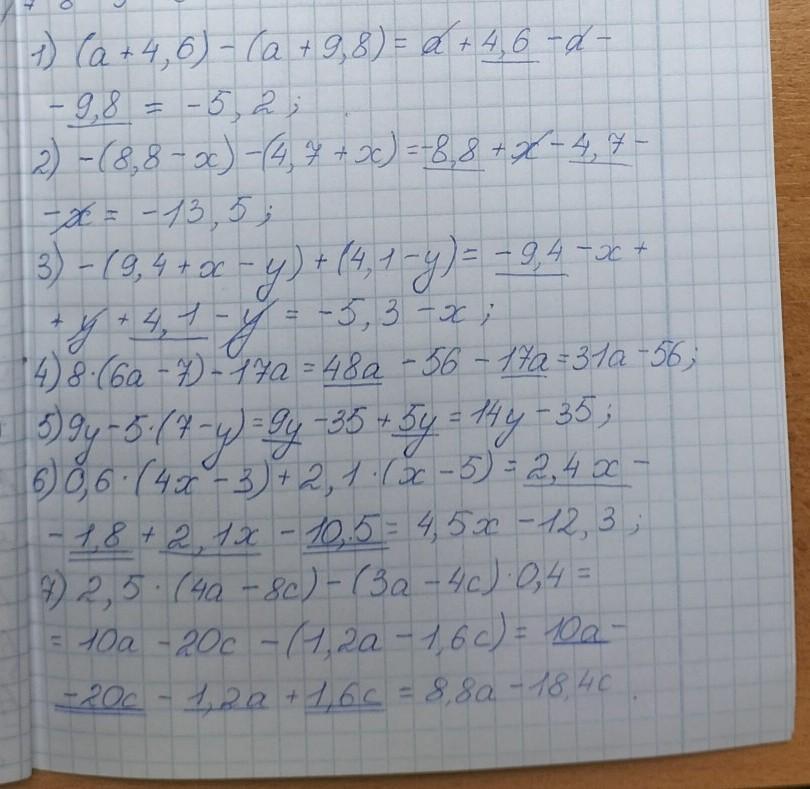 1) (a + 4,6) - (a + 9,8) = a + 4,6 - a -
- 9,8 = -5,2;
2) -(8,8 - x) - (4,7 + x) = -8,8 + x - 4,7 -
- x = -13,5;
3) -(9,4 + x - y) + (4,1 - y) = -9,4 - x +
+ y + 4,1 - y = -5,3 - x;
4) 8·(6a - 7) - 17a = 48a - 56 - 17a = 31a - 56;
5) 9y - 5·(7 - y) = 9y - 35 + 5y = 14y - 35;
6) 0,6·(4x - 3) + 2,1·(x - 5) = 2,4x -
- 1,8 + 2,1x - 10,5 = 4,5x - 12,3;
7) 2,5·(4a - 8c) - (3a - 4c)·0,4 =
= 10a - 20c - (1,2a - 1,6c) = 10a -
- 20c - 1,2a + 1,6c = 8,8a - 18,4c.